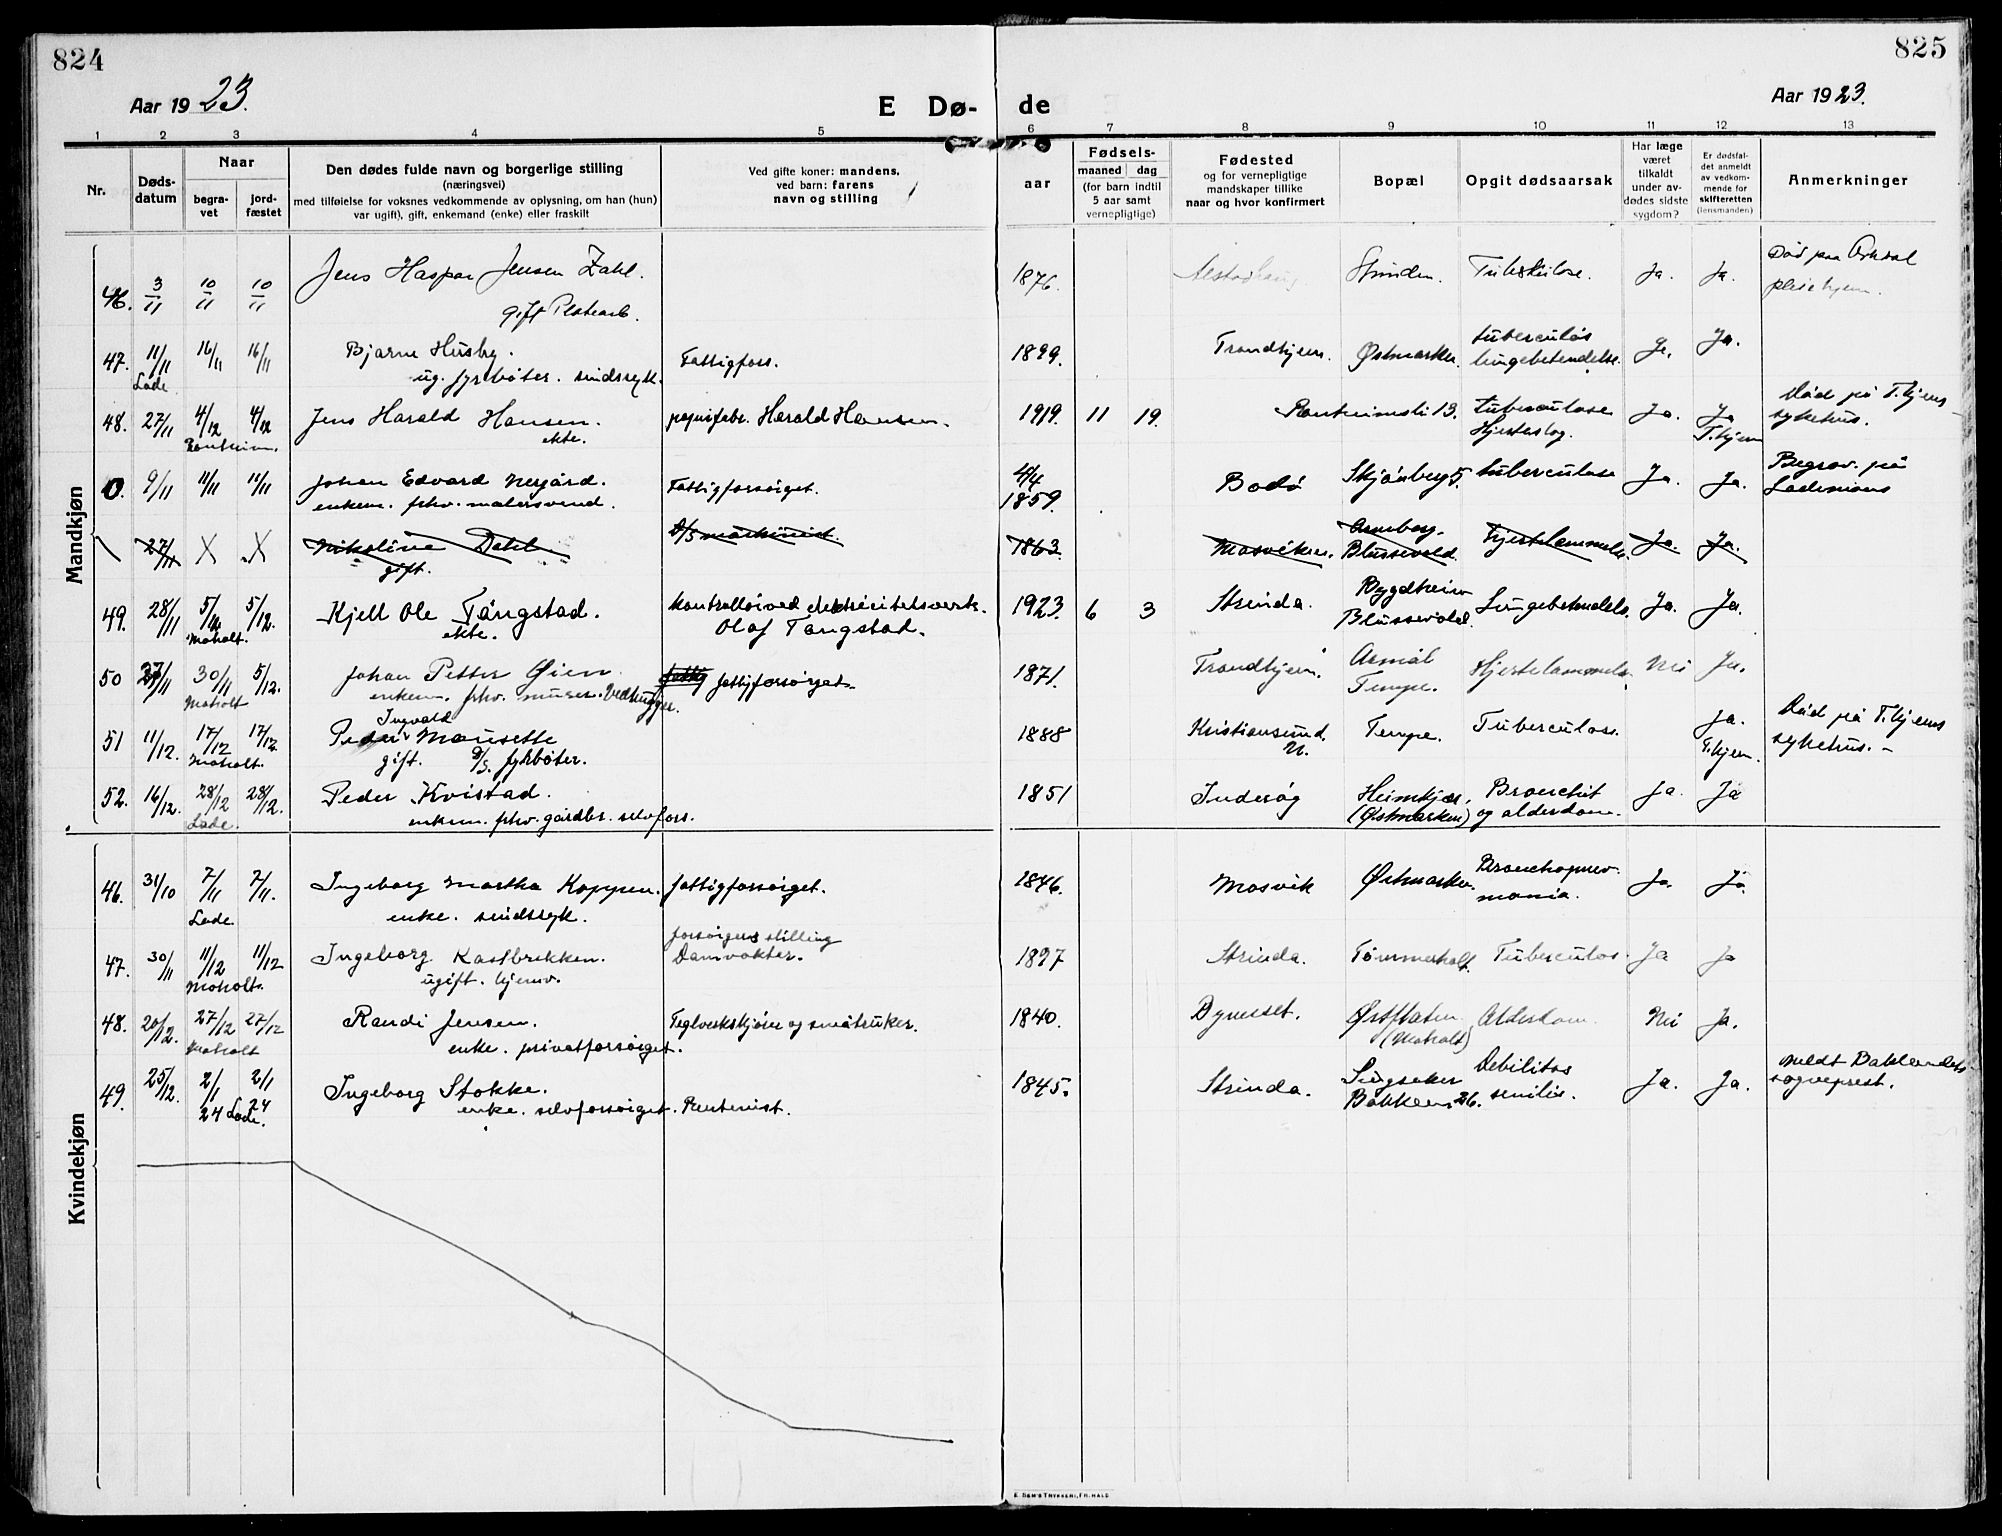 824
825
Aar 1923.
E Dø-
de
Aar 1923.
1 2 3 4 5 6 7 8 9 10 11 12 13
Nr.
Døds-
datum
Naar
begra-
vet
jord-
fæstet
Den dødes fulde navn og borgerlige stilling
(næringsvei)
med tilføielse for voksnes vedkommende av oplysning, om han (hun)
var ugift), gift, enkemand (enke) eller fraskilt
Ved gifte koner: mandens,
ved barn: farens
navn og stilling
aar
Fødsels-
maaned dag
(for barn indtil
5 aar samt
vernepligtige)
Fødested
og for vernepligtige
mandskaper tillike
naar og hvor konfirmert
Bopæl
Opgit dødsaarsak
Har læge
været
tilkaldt
under av-
dødes sidste
sygdom?
Er dødsfal-
det anmeldt
av vedkom-
mende for
skifteretten
(lensmanden)
Anmerkninger
Mandkjøn
46. 3/11 10/11 10/11 Jens Jensen Zahl. 1876. Ja. Ja. Død paa Orkdal
gift pleiehjem.
47. 11/11 16/11 16/11 Bjarne Husby. Fattigfors. 1899. Trondhjem. Østmarken tuberculøs Ja.
Lade ug. fyrbøter. sindssyk. lungebetendelse.
48. 27/11 4/12 4/12 Jens Harald Hansen. papirfabr. Harald Hansen. 1919. 11 19. Ranheimsli 13. tuberculose Ja. Ja Død på T.hjems
Ranheim. ekte. Hjerteslag. T.hjem sykehus.
0. 9/11 11/11 11/11 Johan Edvard Nergård. Fattigforsörget. 4/4 Bodö tuberculose Ja. Ja. Begrav. på
enkem. fhv. malersvend. 1859. Lademoens
27/11 X X Nikoline Dahl D/S maskinist 1863. Mosviken. Hjertelammelse Ja. Ja.
gift. Blussevold.
49. 28/11 5/12 5/12. Kjell Ole Tångstad. Kontrollör ved elektricitetsverk. 1923 6 3 Strinda. Bygdheim Lungebetendelse. Ja. Ja.
Moholt. ekte. Olaf Tangstad. Blussevold.
50 27/11 30/11 5/12. Johan Petter Øien fattigforsørget. 1871. Trondhjem. Tempe. Hjertelammelse Nei Ja.
Moholt enkem. fhv. murer. Vedhugger.
Ingvald
51 11/12. 17/12 17/12. Peder Mausette 1888 Kristiansund. Tempe. Tuberculose. Ja. Død på T.hjems
Moholt. gift. D/S. fyrbøter. N. T.hjem. sykehus. -
52. 16/12. 28/12 28/12. Peder Kvistad. 1851 Inderøy Heimkjær. Bronchit Ja. Ja
Lade. enkem. fhv. gårdbr. selvfors. (Østmarken) og alderdom.
Kvindekjøn
46. 31/10 7/11 7/11. Ingeborg Martha Koppen. fattigforsörget. 1846. Mosvik Østmarken. Bronchopnev- Ja. Ja.
Lade enke. sindssyk. monia.
forsörgers stilling
47. 30/11 11/12 11/12 Ingeborg Kastbrekken. Damvokter. 1897 Strinda. Tømmerholt. Tuberculos Ja Ja
Moholt. ugift. hjemv.
48. 20/12. 27/12 27/12 Randi Jensen. Teglverkskjörer og småbruker. 1840. Bynesset. Alderdom. Nei Ja.
Moholt enke. privatforsörget. (Moholt)
49. 25/12. 2/1 2/1 Ingeborg Stokke. Rentenist. 1845. Strinda. Singsaker Debilitas Ja. Ja. meldt Baklandets
24 Lade. 24 enke. selvforsörget. Bakken 26. senilis. sogneprest.
E. Sem's Trykkeri, Fr.hald